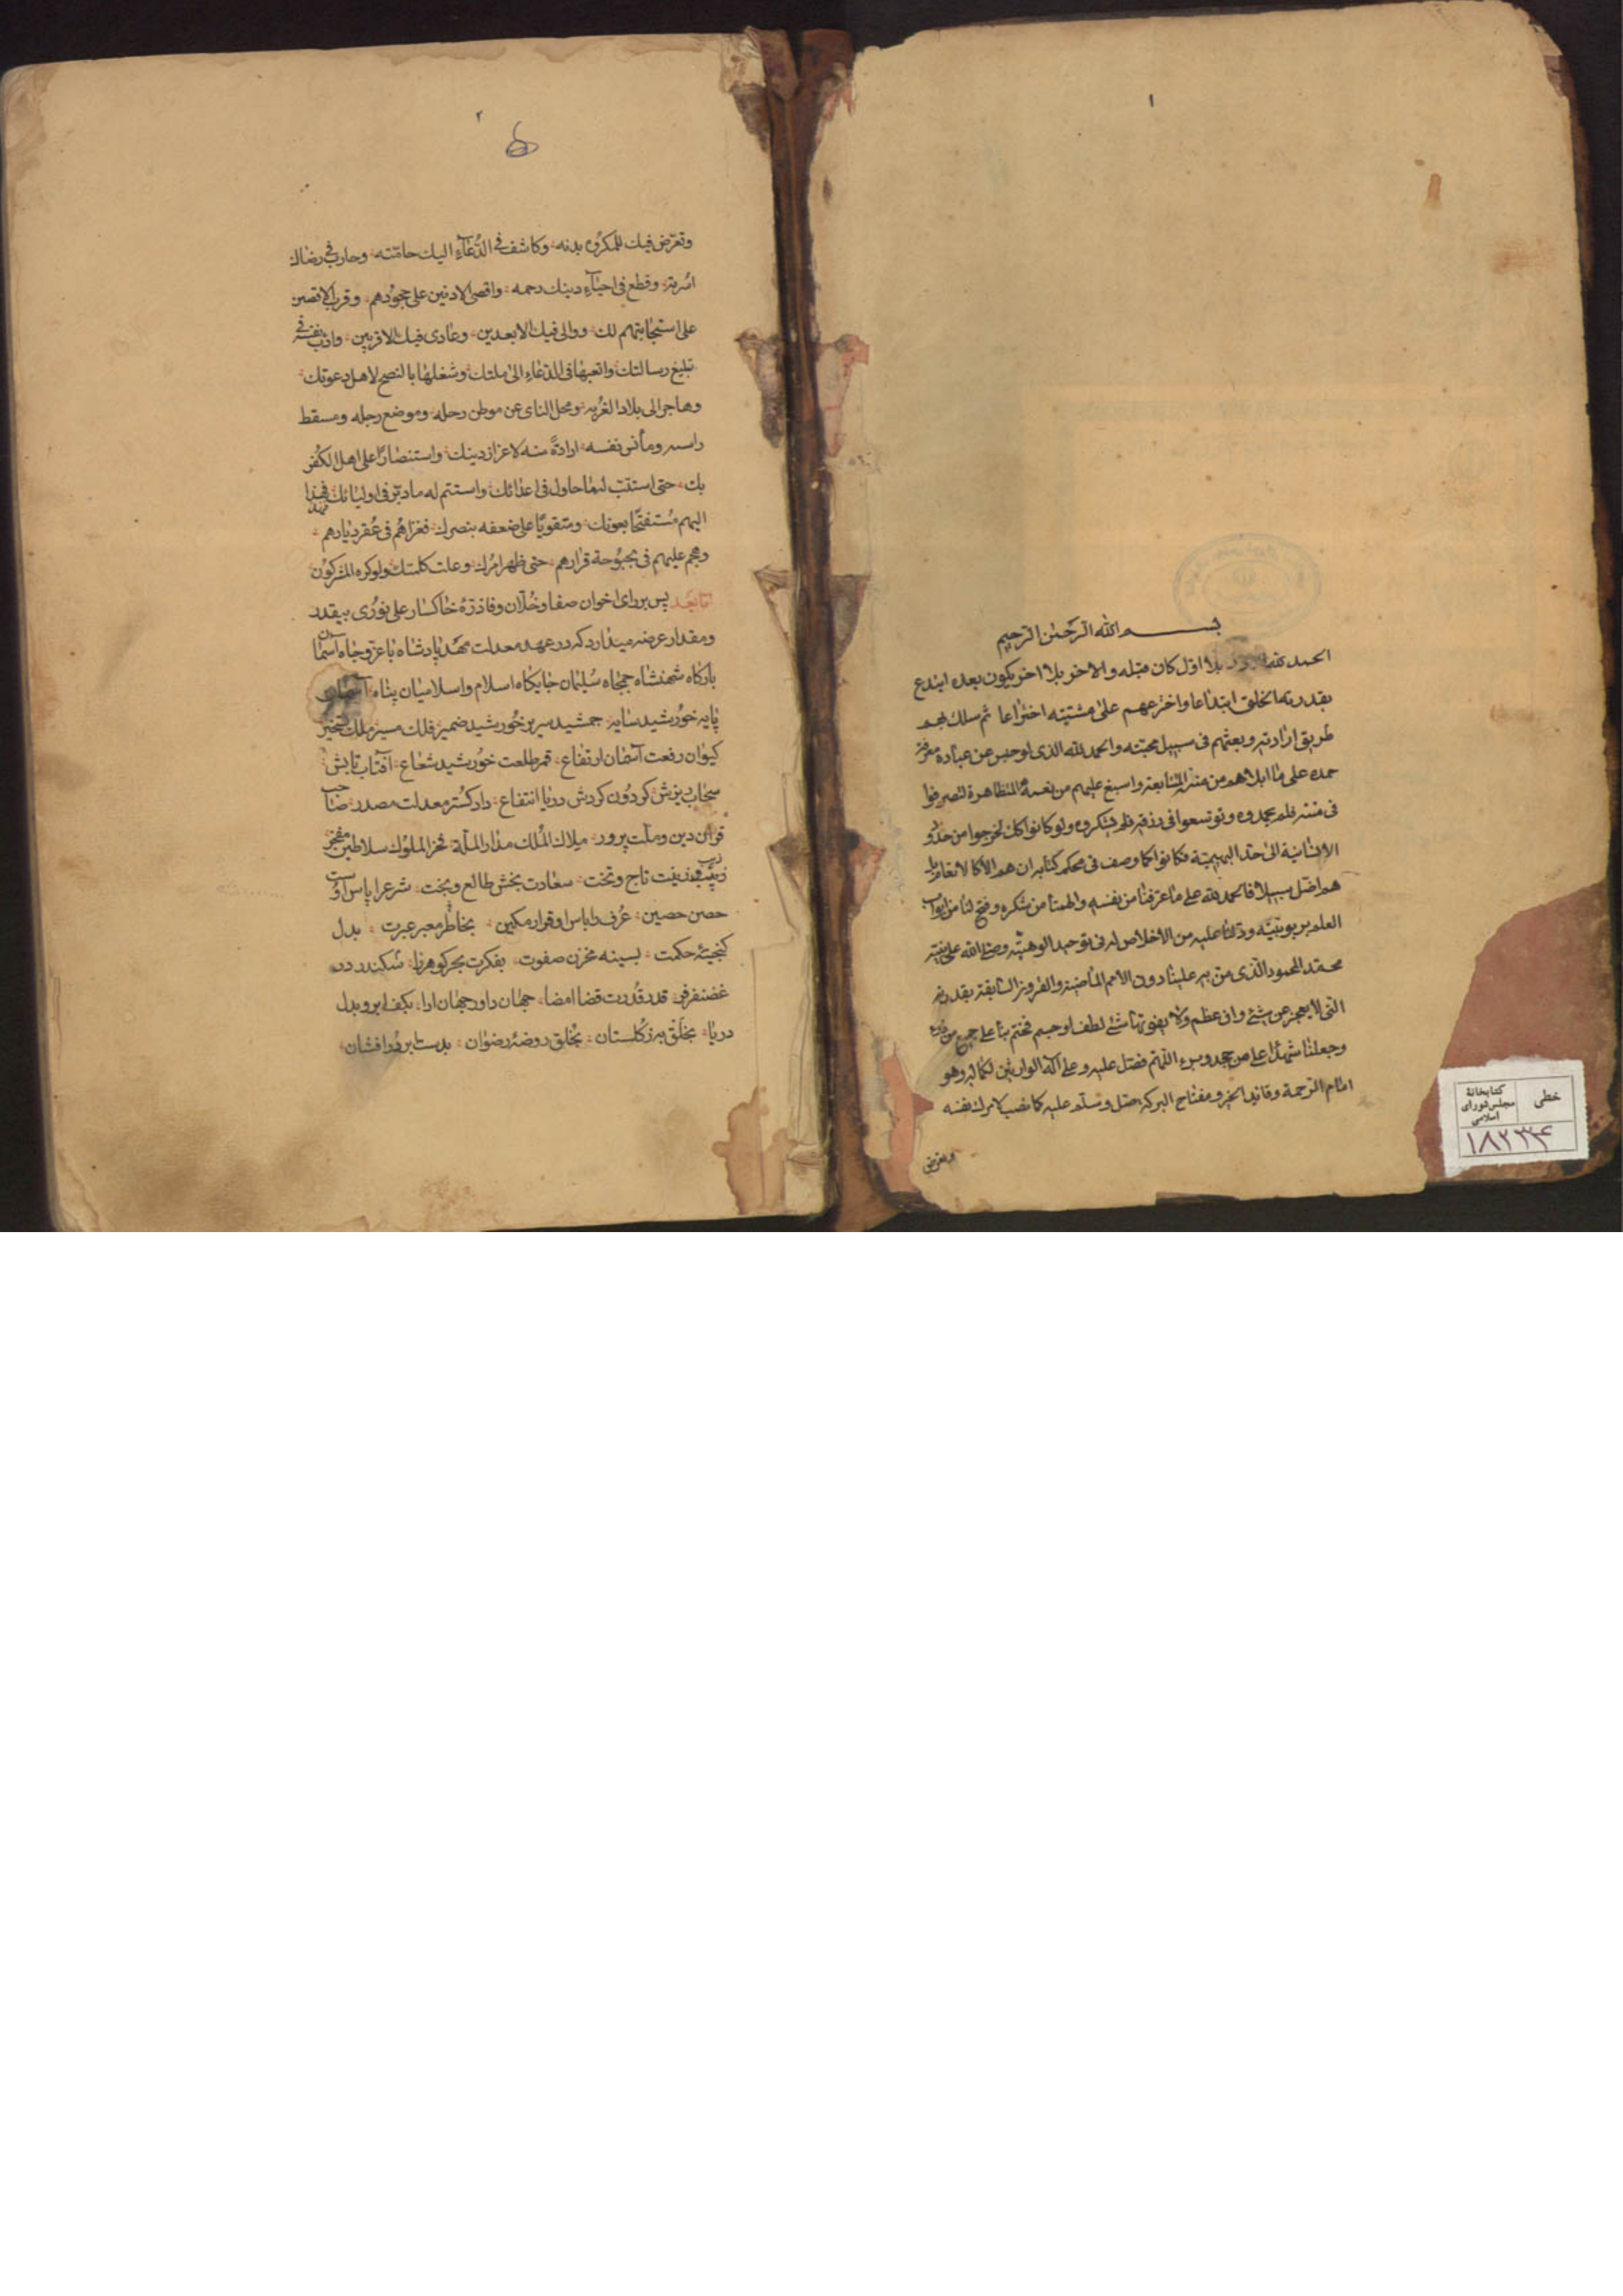 ۱
بسم الله الرحمن الرحیم
الحمد لله الاول بلا اول کان قبله والاخر بلا اخر یکون بعده ابتدع
بقدرته الخلق ابتداعا واخترعهم علی مشیته اختراعا ثم سلک بهم
طریق ارادته وبعثهم فی سبیل محبته والحمد لله الذی لو حبس عن عباده معرفة
حمده علی ما ابلاهم من مننه المتتابعة واسبغ علیهم من نعمه المتظاهرة لتصرفوا
فی مننه فلم یحمدوه وتوسعوا فی رزقه فلم یشکروه ولو کانوا کذلک لخرجوا من حدود
الانسانیة الی حد البهیمیة فکانوا کما وصف فی محکم کتابه ان هم الا کالانعام بل
هم اضل سبیلا فالحمد لله علی ما عرفنا من نفسه والهمنا من شکره وفتح لنا من ابواب
العلم بربوبیته ودلنا علیه من الاخلاص له فی توحید الوهیته وصلی الله علی نبیه
محمد المحمود الذی من به علینا دون الامم الماضیة والقرون السابقة بقدرته
التی لا یعجز عن شیء وان عظم ولا یفوتها شیء لطف او جسم فختم بنا علی جمیع من ذرء
وجعلنا شهداء علی من جحد وبرء اللهم فصل علیه وعلی آله الوارثین لکماله وهو
امام الرحمة وقائد الخیر ومفتاح البرکة صل وسلم علیه کما نصب لامرک نفسه
وتعرض
خطی
کتابخانهٔ مجلس شورای اسلامی
۱۸۲۳۴
۲
وتعرض فیک للمکروه بدنه وکاشف فی الدعآء الیک حامته وحارب فی رضاک
اسرته وقطع فی احیآء دینک رحمه واقصی الادنین علی جحودهم وقرب الاقصین
علی استجابتهم لک ووالی فیک الابعدین وعادی فیک الاقربین وادأب نفسه فی
تبلیغ رسالتک واتعبها فی الدعاء الی ملتک وشغلها بالنصح لاهل دعوتک
وهاجر الی بلاد الغربه ومحل النای عن موطن رحله وموضع رجله ومسقط
راسه ومأنس نفسه ارادة منه لاعزاز دینک واستنصارا علی اهل الکفر
بک حتی استتب له ما حاول فی اعدائک واستتم له ما دبر فی اولیائک فنهد
الیهم مستفتحا بعونک ومتقویا علی ضعفه بنصرک فغزاهم فی عقر دیارهم
وهجم علیهم فی بحبوحة قرارهم حتی ظهر امرک وعلت کلمتک ولو کره المشرکون
اما بعد پس برای اخوان صفا وخلان وفا ذره خاکسار علی نوری بیقدر
ومقدار عرضه میدارد که در عهد معدلت مهد پادشاه با عز وجاه آسمان
بارکاه شهنشاه جمجاه سلیمان جایکاه اسلام واسلامیان پناه آسمان
پایه خورشید سایه جمشید سریر خورشید ضمیر فلک مسیر ملک تسخیر
کیوان رفعت آسمان ارتفاع قمر طلعت خورشید شعاع آفتاب تابش
سحاب بزش کردون کردش دریا انتفاع دادکستر معدلت مصدر صاحب
قران دین وملت پرور ملاک الملک مدار الملة فخر الملوک سلاطین مفخر
زیب وزینت تاج وتخت سعادت بخش طالع وبخت شرع را پاس اوست
حصن حصین عرف را باس او قرار مکین بخاطر معبر عبرت بدل
کنجینهٔ حکمت بسینه مخزن صفوت بفکرت بحر کوهرزا شکندر در
غضنفر فر قدر قدرت قضا امضا جهان داور جهان ارا بکف ابر وبدل
دریا بخلق به ز کلستان بخلق روضهٔ رضوان بدست ابر در افشان